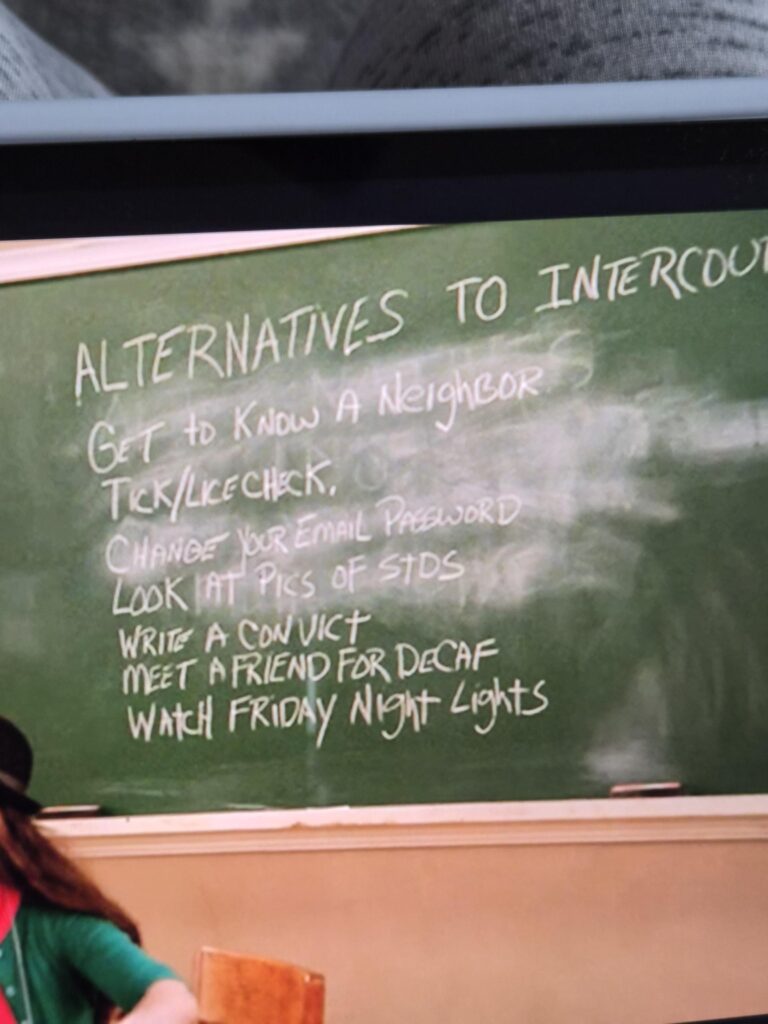 ALTERNATIVES TO INTERCOU
GET to KNOW A NeighBOR
TICK/LICE CHECK.
CHANGE YOUR EMAIL PASSWORD
LOOK AT PICS OF STDS
WRITE A CONVICT
MEET A FRIEND FOR DECAF
WATCH FRIDAY Night Lights